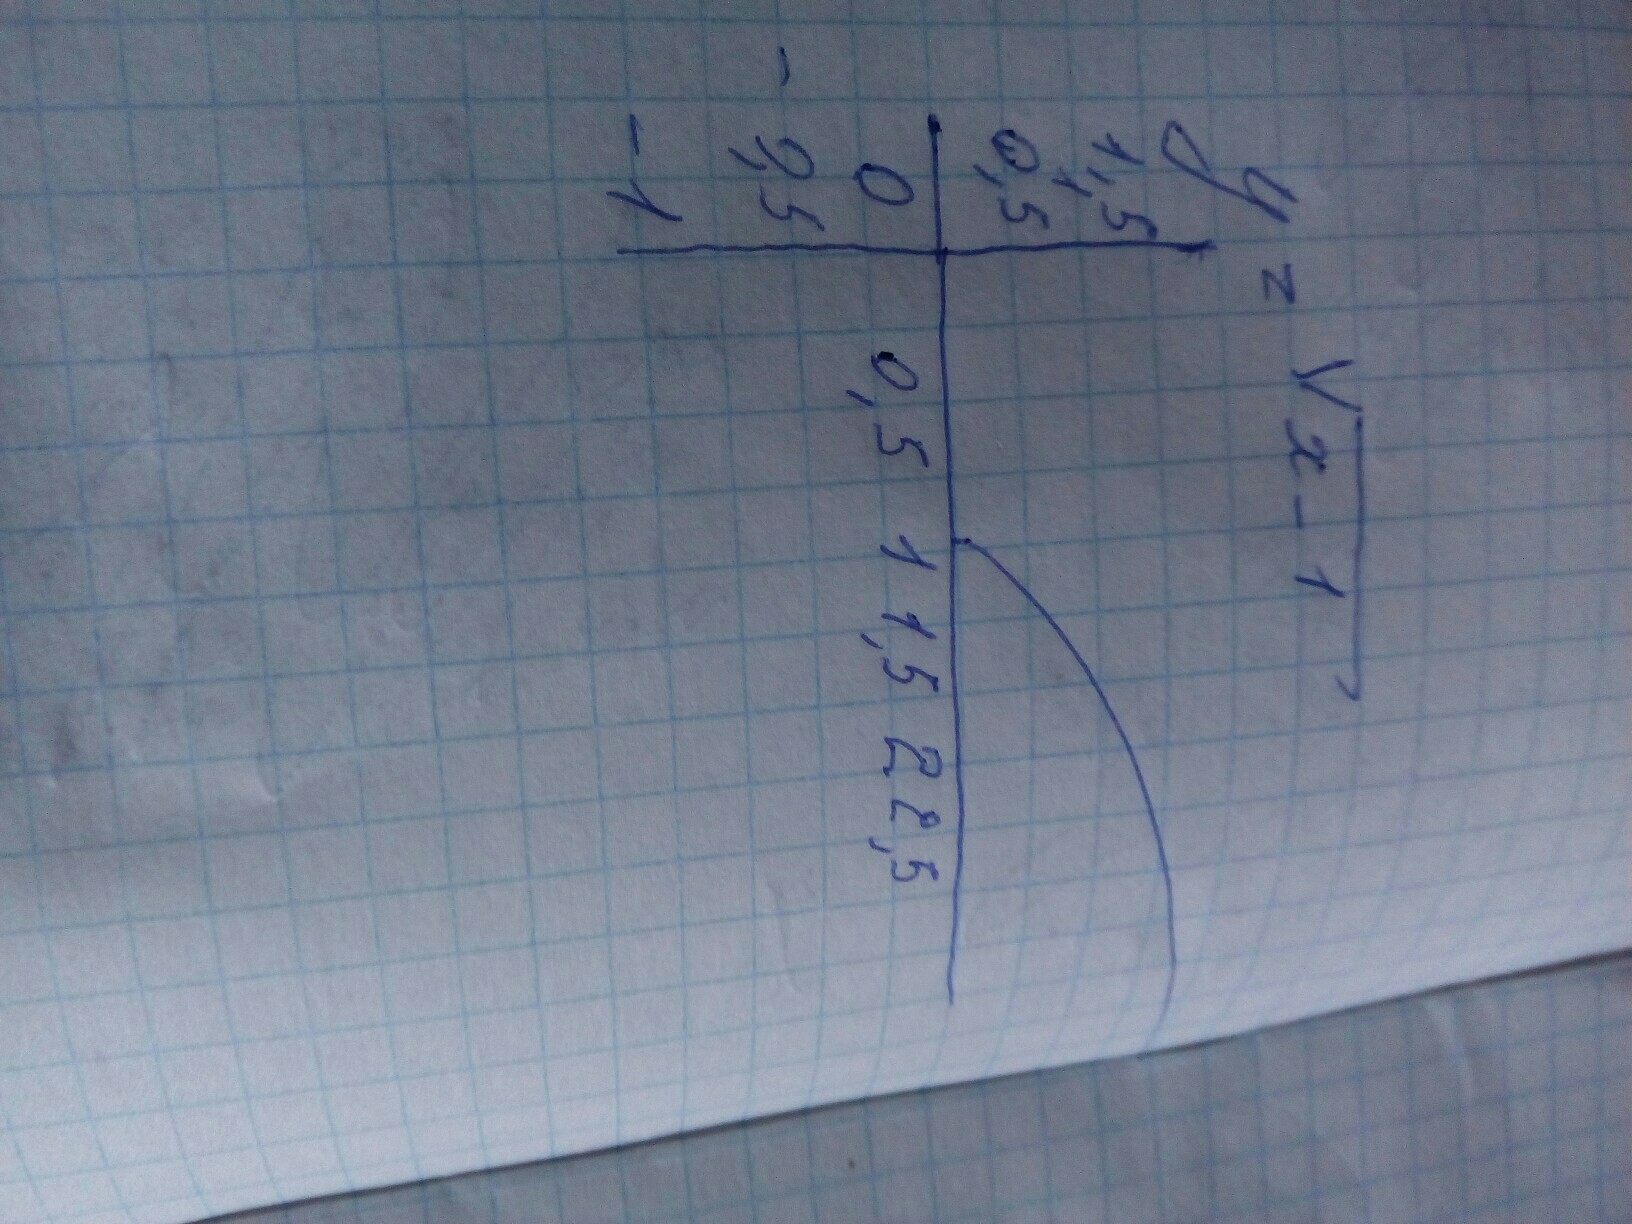 y = √x-1
y
1,5
1
0,5
0
- 0,5
-1
0,5 1 1,5 2 2,5